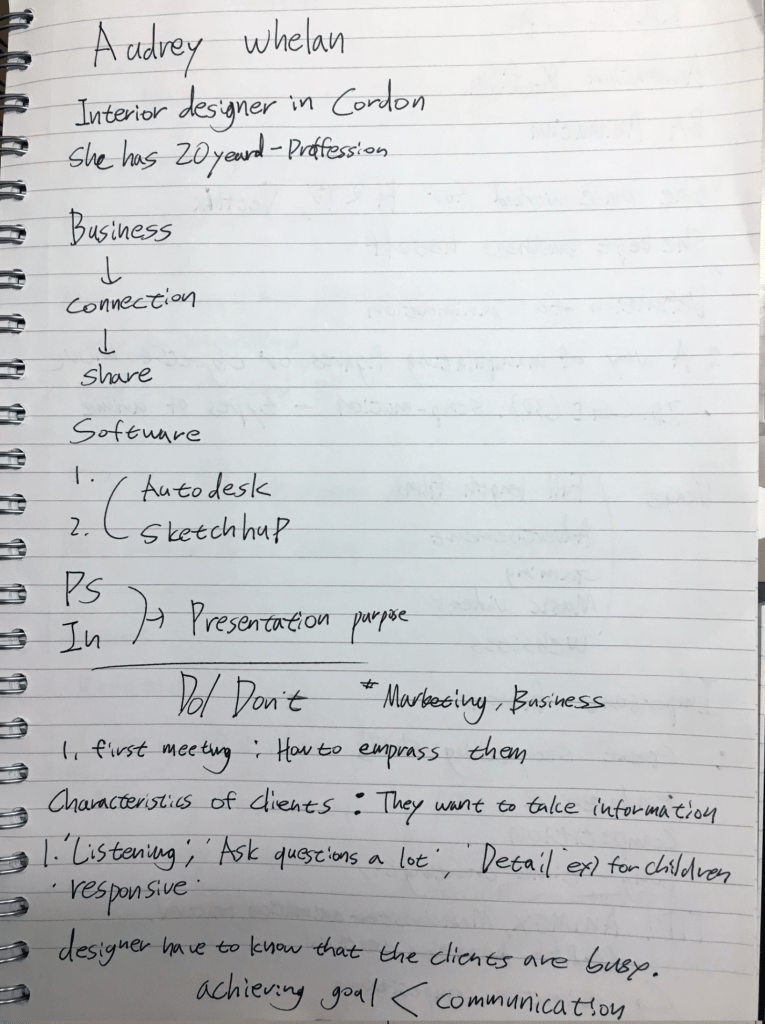 Audrey Whelan
Interior designer in Cordon
She has 20 yeard - Proffession
Business
↓
Connection
↓
Share
Software
1. Autodesk
2. Sketchhup
PS
In → Presentation purpose
Do/ Don't * Marketing, Business
1, first meeting : How to emprass them
Characteristics of clients : They want to take information
1. 'Listening', 'Ask questions a lot', 'Detail' ex) for children
'responsive'
designer have to know that the clients are busy.
achieving goal < communication